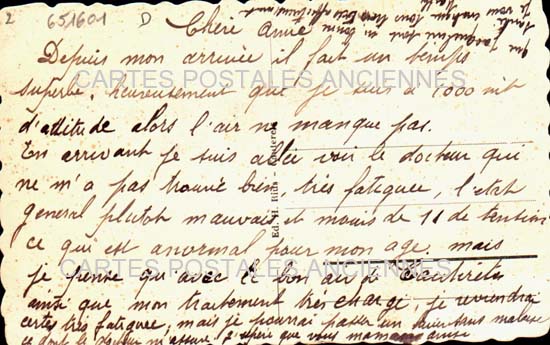 2 651601 D
Chère Amie
Depuis mon arrivée il fait un temps
superbe, heureusement que je suis à 1000 mt
d'attitude alors l'air ne manque pas.
En arrivant je suis allée voir le docteur qui
ne m'a pas trouvée bien, très fatiguée, l'état
general plutôt mauvais et moins de 11 de tension
ce qui est anormal pour mon age. mais
je pense qu'avec le bon air de Cauterets
ainsi que mon traitement très chargé, je reviendrai
certes très fatiguée, mais je pourrai passer un hiver
ce dont le docteur m'assure. J'espère que vous
CARTES POSTALES ANCIENNES
CARTES POSTALES ANCIENNES